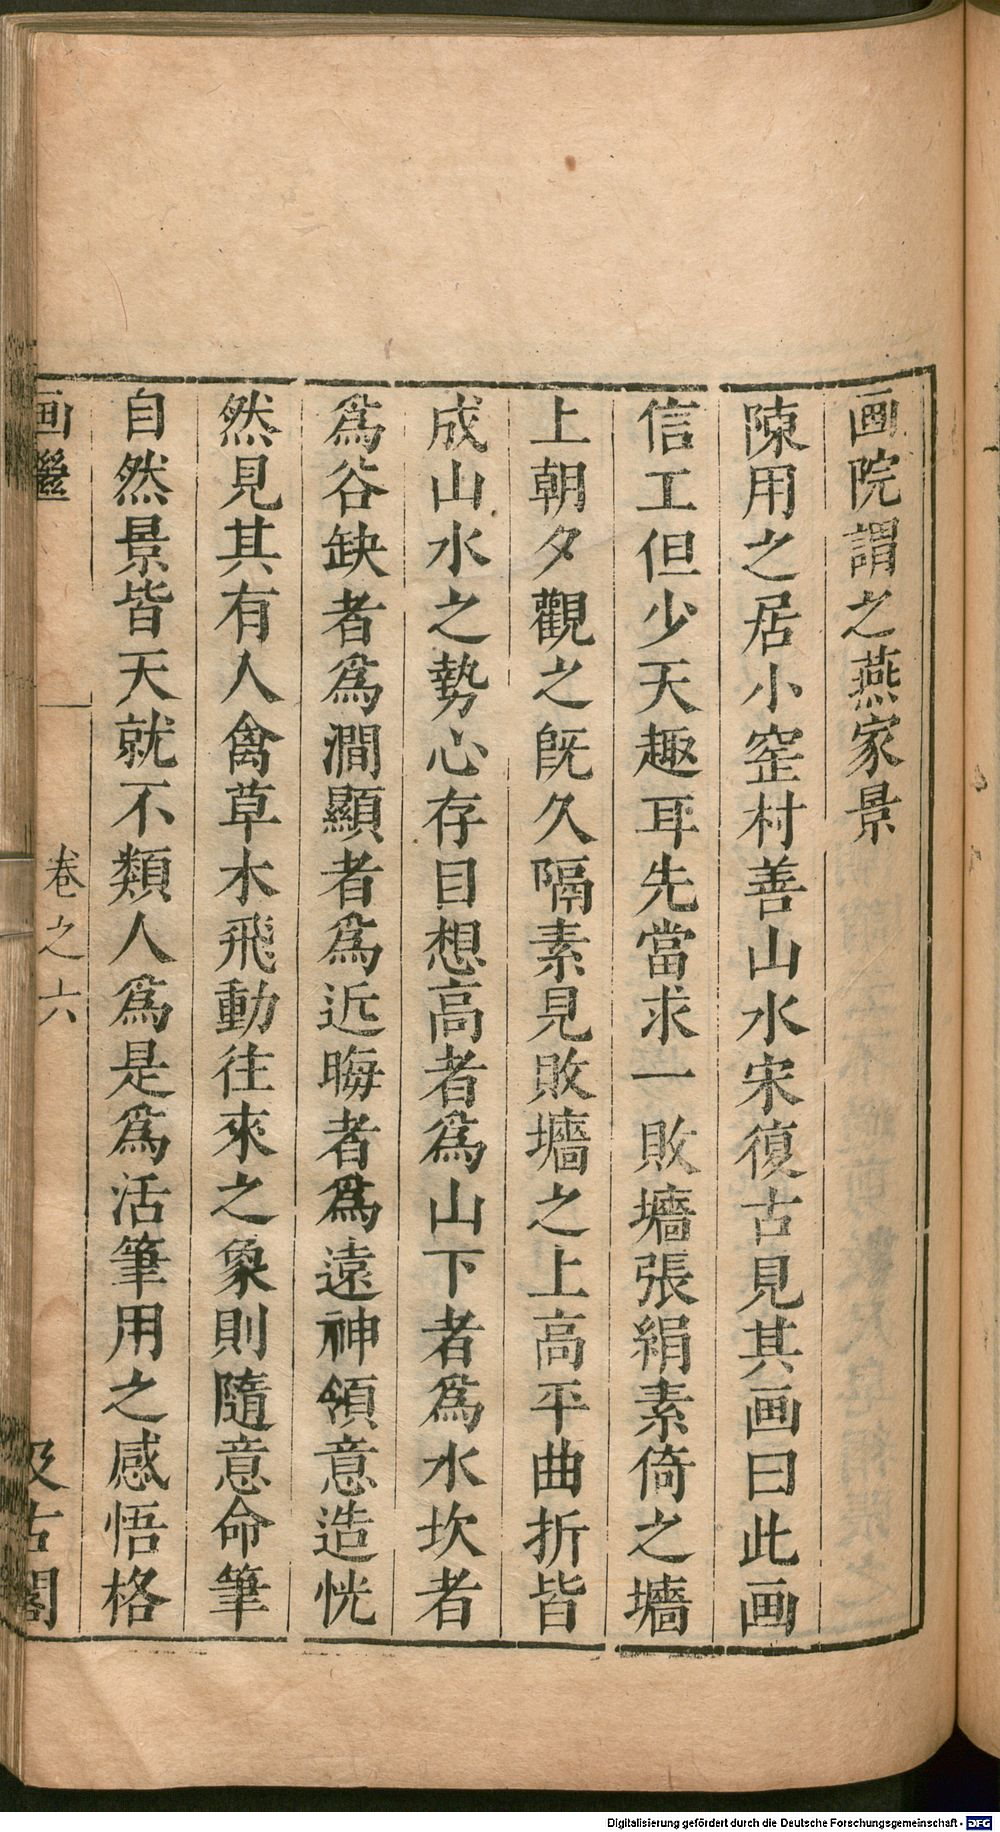 画院謂之燕家景
陳用之居小窑村善山水宋復古見其画曰此画
信工但少天趣耳先當求一敗墻張絹素倚之墻
上朝夕觀之旣久隔素見敗墻之上高平曲折皆
成山水之勢心存目想高者爲山下者爲水坎者
爲谷缺者爲澗顯者爲近晦者爲遠神領意造恍
然見其有人禽草木飛動往來之象則隨意命筆
自然景皆天就不類人爲是爲活筆用之感悟格
画繼
卷之六
汲古閣
Digitalisierung gefördert durch die Deutsche Forschungsgemeinschaft - DFG